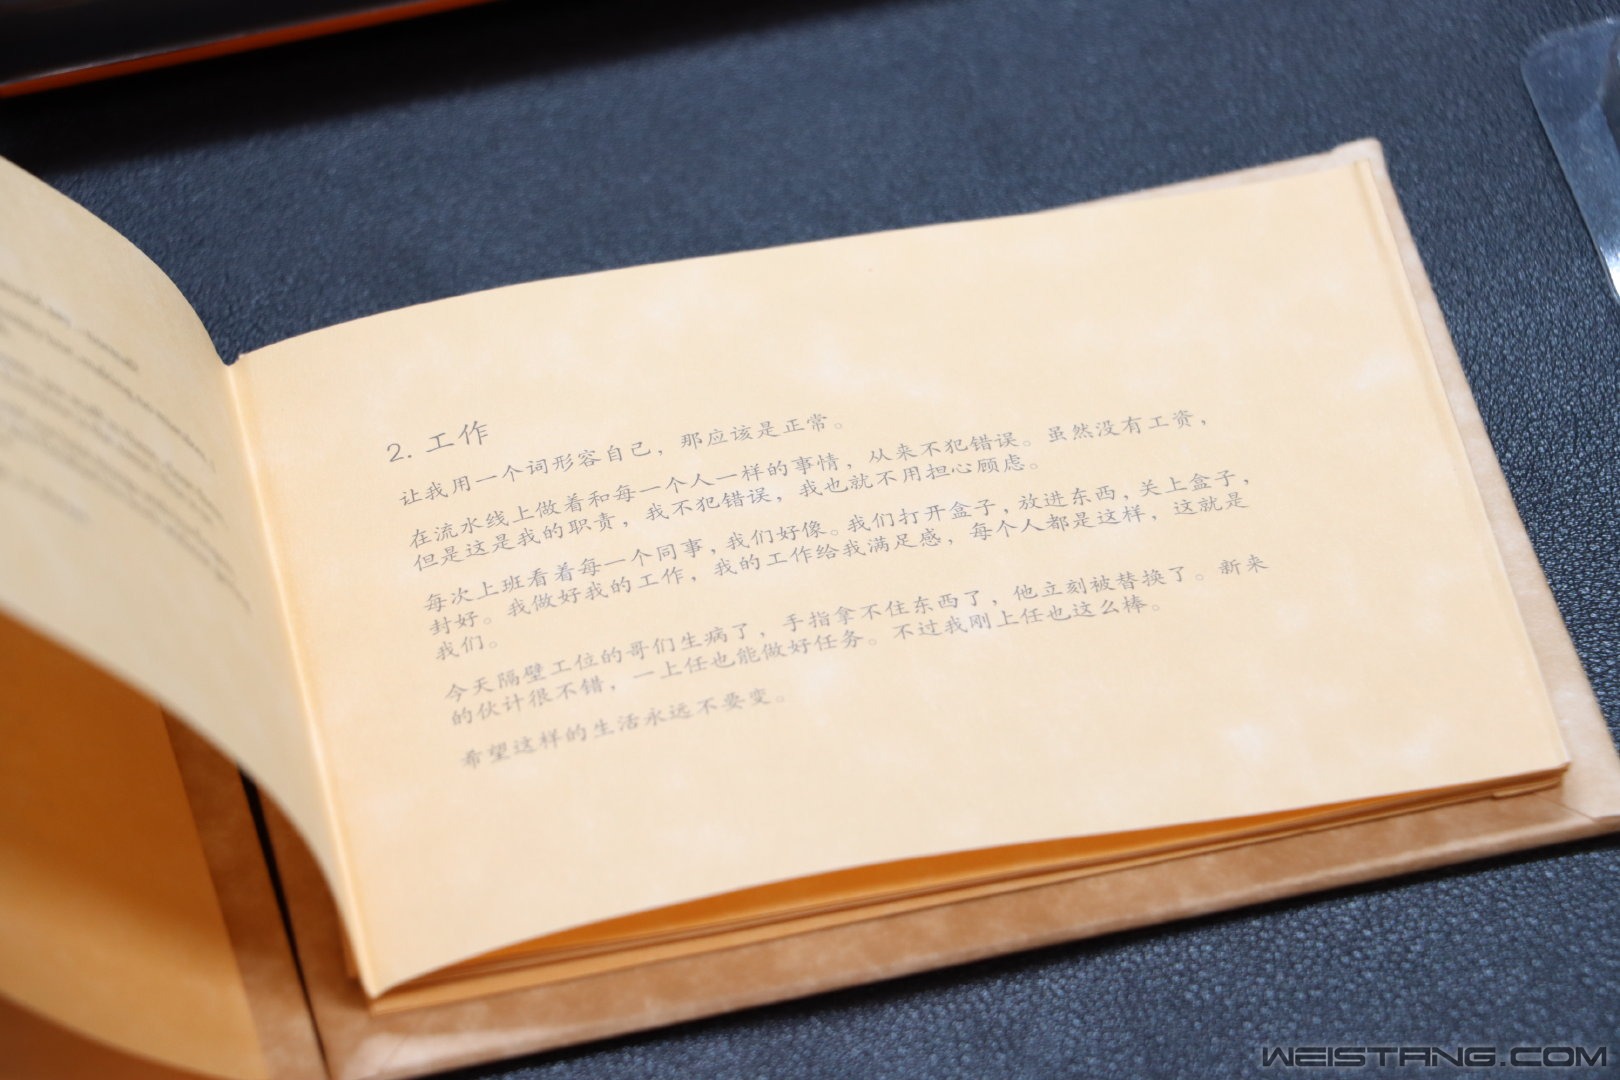 2. 工作
让我用一个词形容自己，那应该是正常。
在流水线上做着和每一个人一样的事情，从来不犯错误。虽然没有工资，
但是这是我的职责，我不犯错误，我也就不用担心顾虑。
每次上班看着每一个同事，我们好像。我们打开盒子，放进东西，关上盒子，
封好。我做好我的工作，我的工作给我满足感，每个人都是这样，这就是
我们。
今天隔壁工位的哥们生病了，手指拿不住东西了，他立刻被替换了。新来
的伙计很不错，一上任也能做好任务。不过我刚上任也这么棒。
希望这样的生活永远不要变。
WEISTANG.COM